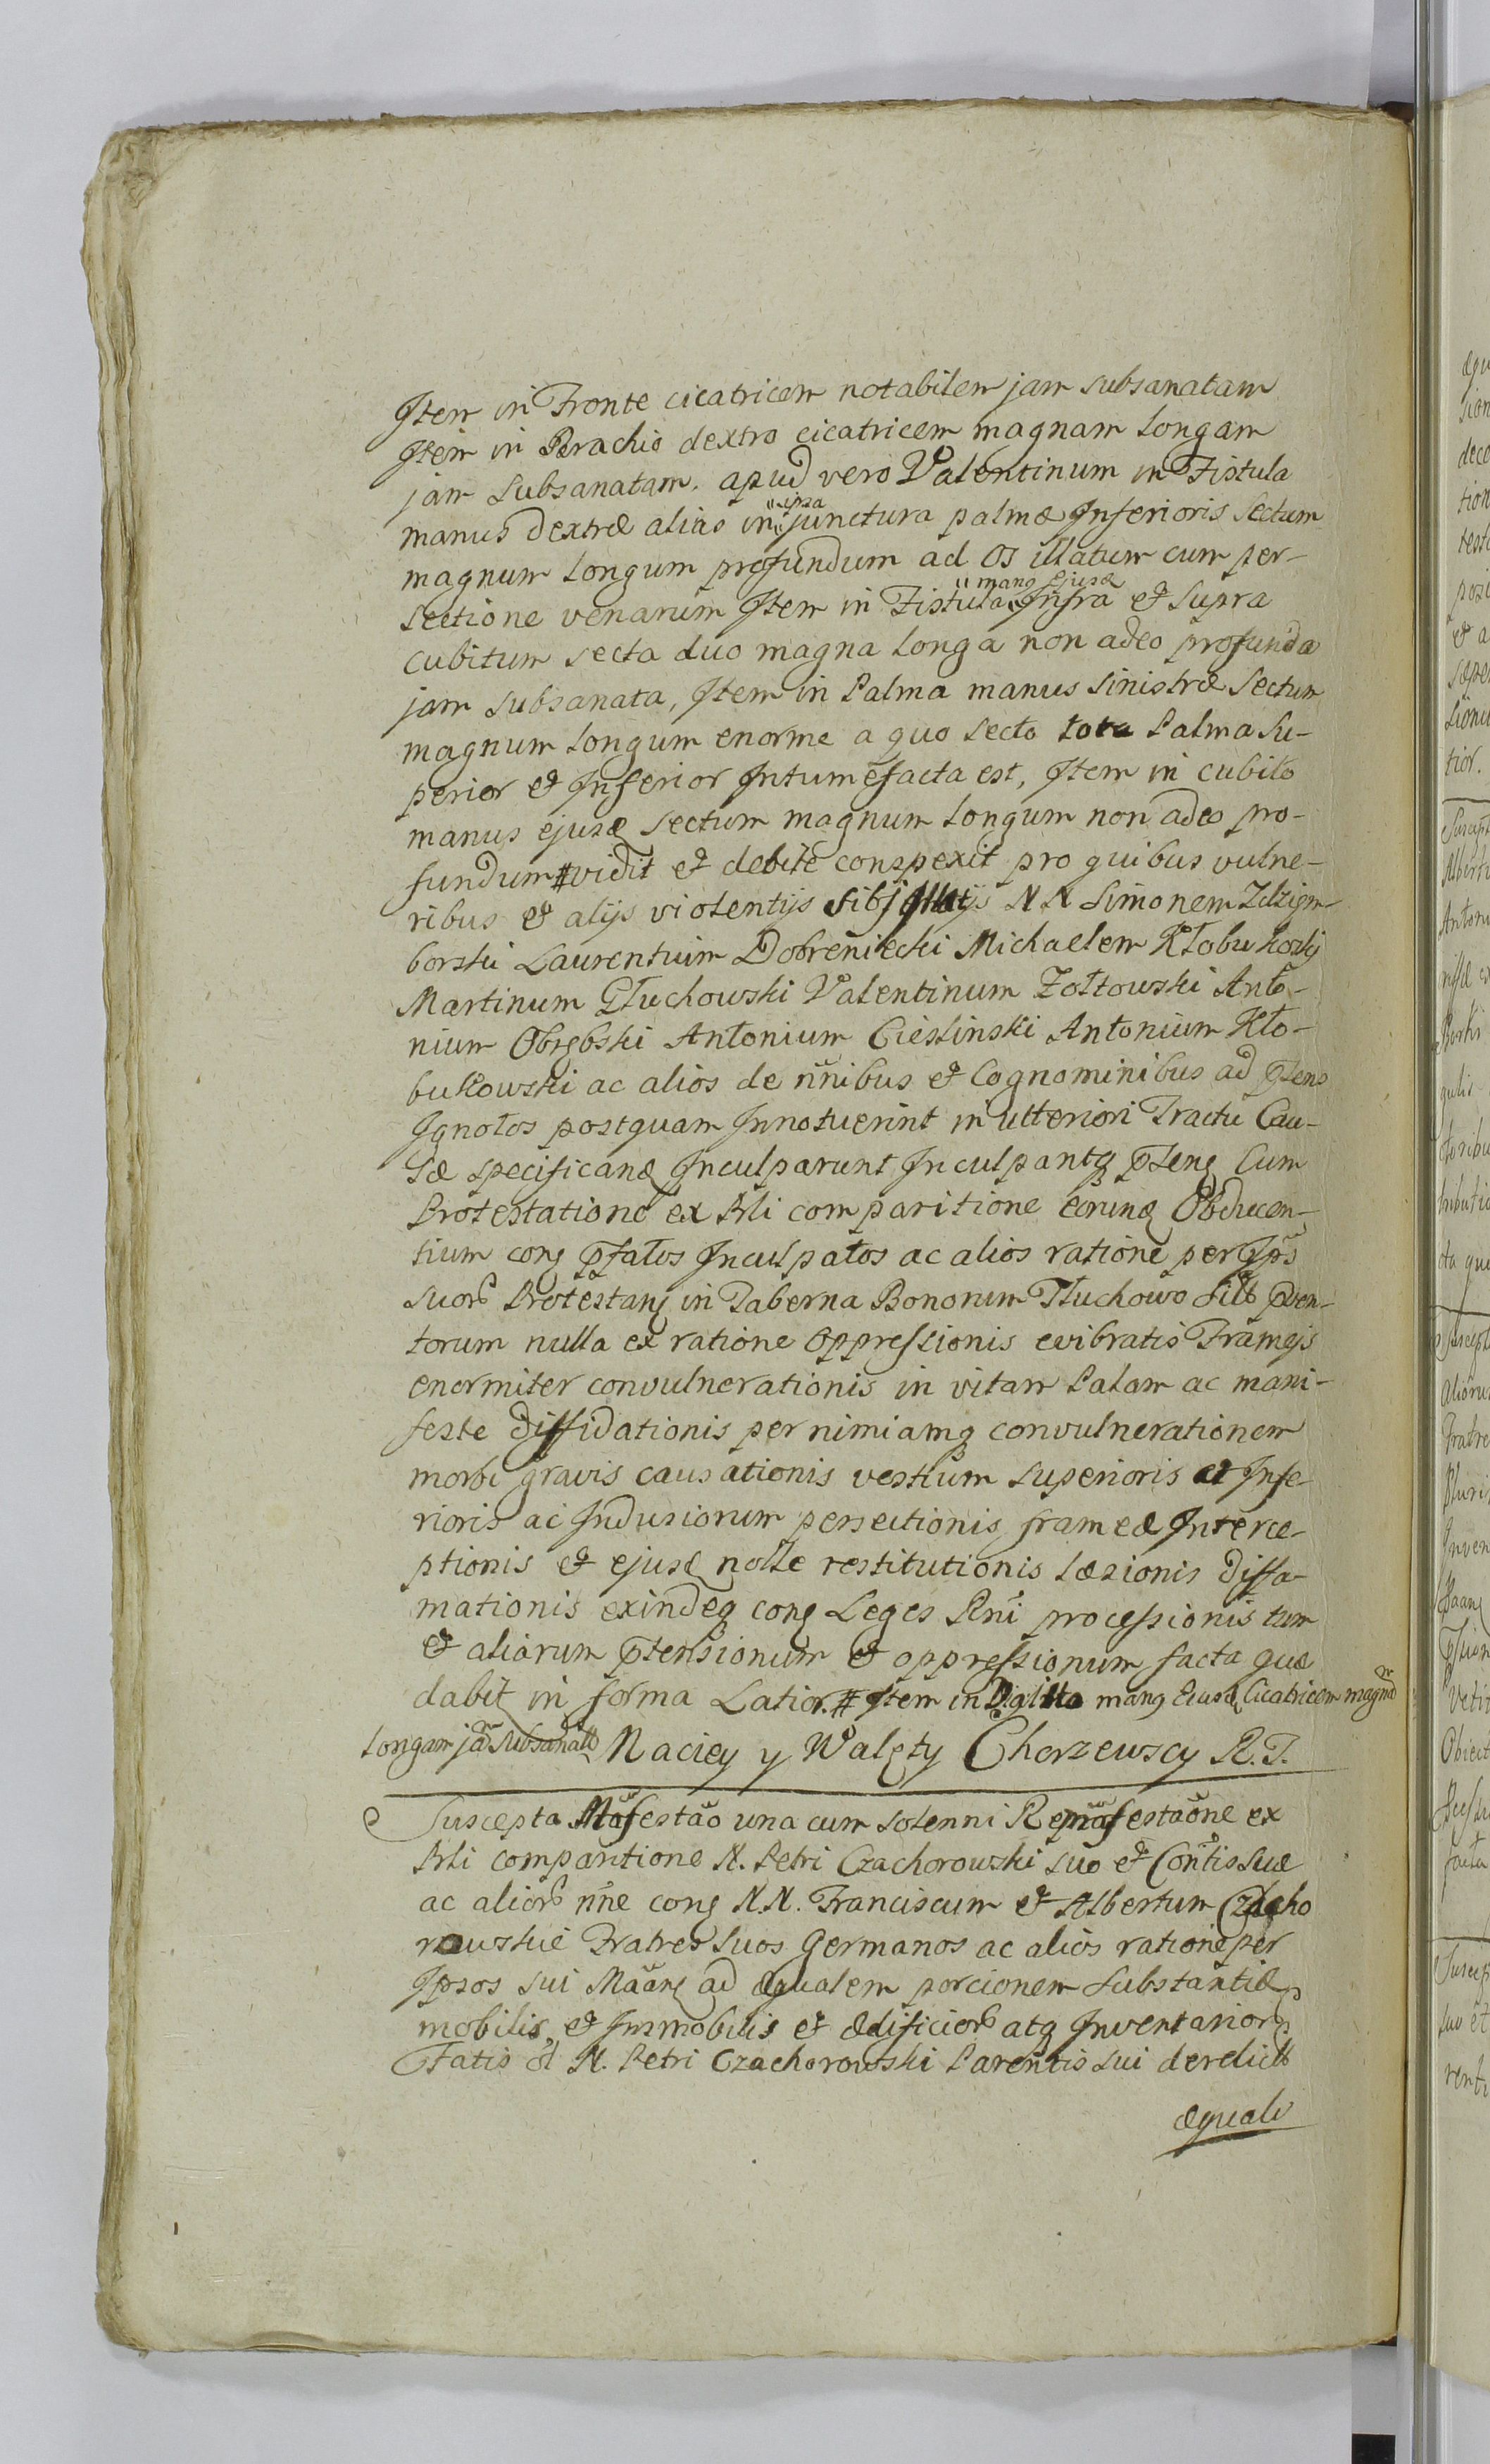 Item in Fronte cicatricem notabilem jam subsanatam
Item in Brachio dextro cicatricem magnam longam
jam subsanatam. apud vero Valentinum in Fistula
manus dextræ alias in ipsa junctura palmæ Inferioris sectum
magnum longum profundum ad os illatum cum per-
sectione venarum Item in Fistula manq ejusd Infra et supra
cubitum secta duo magna longa non adeo profunda
jam subsanata, Item in Palma manus sinistræ sectum
magnum longum enorme a quo secto tota Palma Su-
perior et Inferior Intumefacta est, Item in cubito
manus ejusd sectum magnum longum non adeo pro-
fundum # vidit et debite conspexit pro quibus vulne-
ribus et alijs violentijs sibj illatis N N Simonem Zdzigm-
borski Laurentium Dobreniecki Michaelem Kłobukoski
Martinum Głuchowski Valentinum Zołtowski Anto-
nium Obrębski Antonium Cieslinski Antonium Kło-
bukowski ac alios de nñnibus et Cognominibus ad pñens
Ignotos postquam Innotuerint in ulteriori Tractu Cau-
sæ specificand Inculparunt Inculpantq pñenq Cum
Protestatione ex Prli comparitione eorund Obducen-
tium conq pfatos Inculpatos ac alios ratione per Ipõs
suorb Protestanq in Taberna Bonorum Tłuchowo sitb pven-
torum nulla ex ratione oppressionis evibratis Frameis
enormiter convulnerationis in vitam Palam ac mani-
feste diffidationis per nimiamq convulnerationem
morbi gravis causationis vestium superioris et Infe
rioris ac Indusiorum persectionis frameæ Interce-
ptionis et ejusd nolle restitutionis læsionis diffa-
mationis exindeq conq Leges Rñi processionis tum
et aliarum ptensionum et oppressionum facta quæ
dabit in forma Latior. # Item in Digitto manq Eiusd Cicatricem magnã
longam jã subsanatã Maciey y Walęty Chorzewscy R. P.
Suscepta Mãfestaõ una cum solenni Remãfestaõne ex
Prli comparitione N. Petri Czachorowski suo et Cõntis suæ
ac aliorb nñe conq N.N. Franciscum et Albertum Czacho
rowskie Fratres suos Germanos ac alios ratione per
Ipsos sui Mãanq ad æqualem porcionem substantiæ
mobilis, et Immobilis et Ædificiorb atq Inventariorb
Fatis ol N. Petri Czachorowski Parentis sui derelictb
æquali